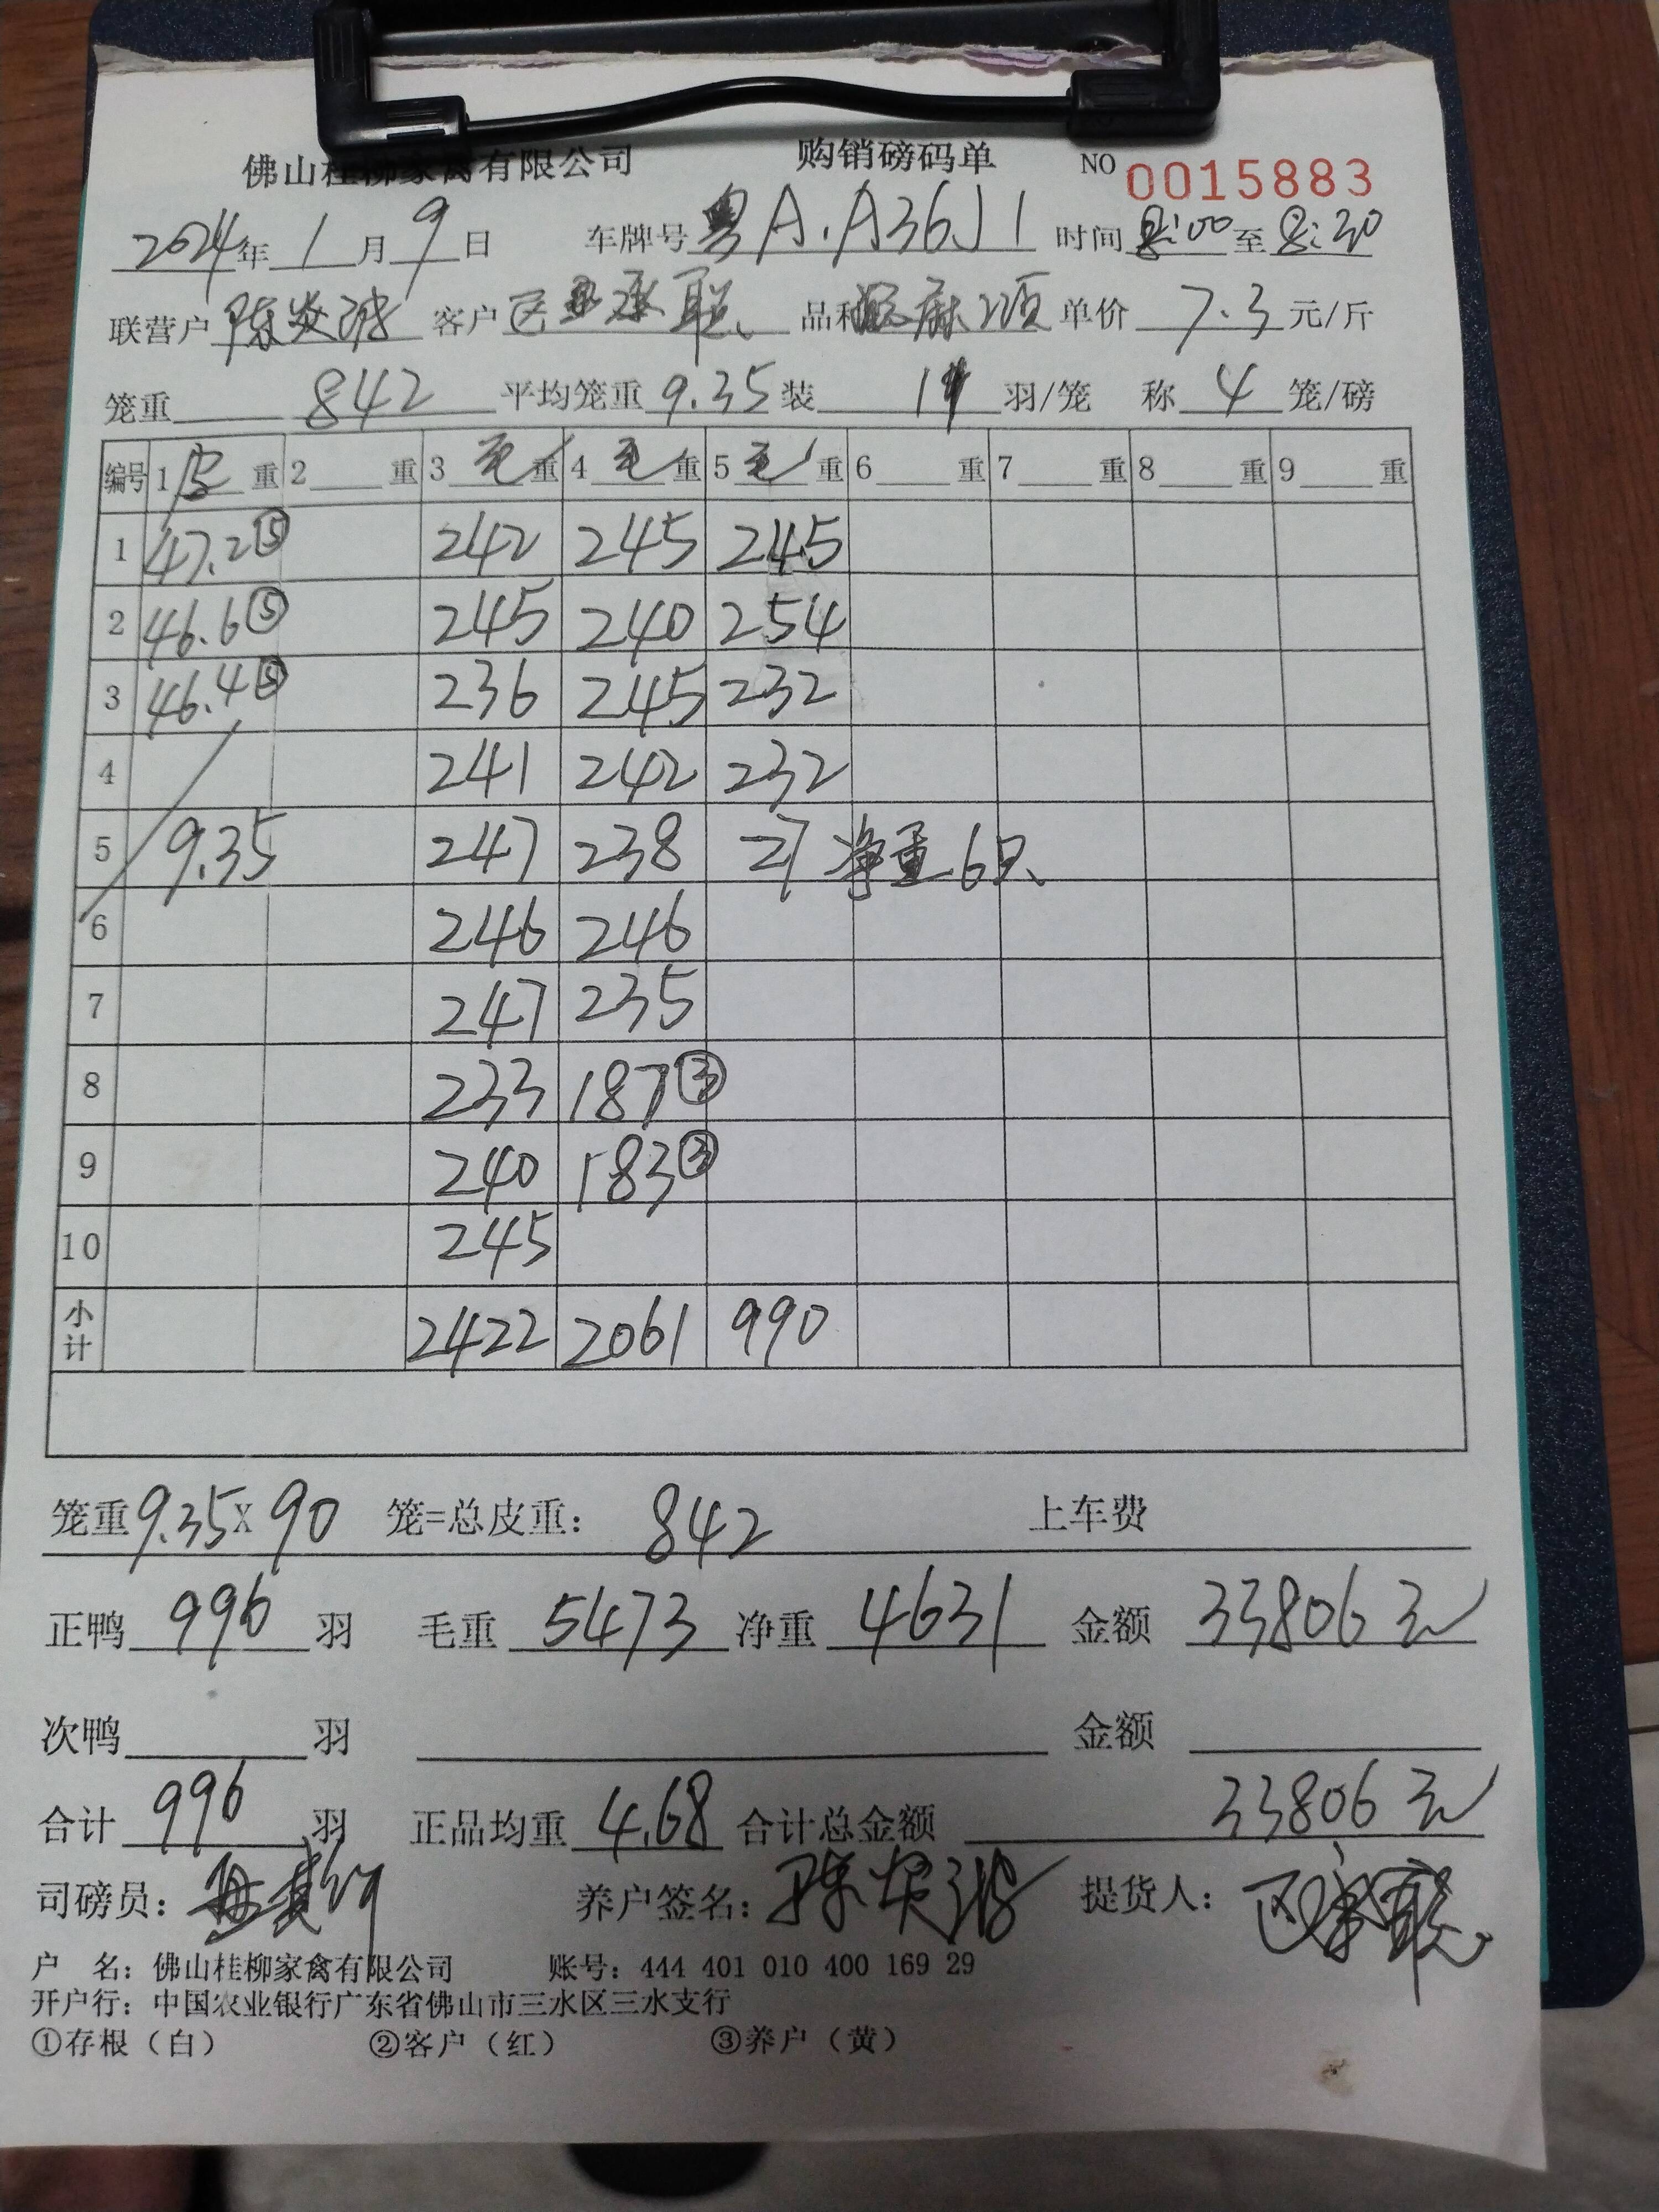 佛山桂柳家禽有限公司 购销磅码单 NO 0015883
2024年1月9日 车牌号粤A.A36J1 时间8:00至8:30
联营户 客户 品种 单价7.3元/斤
笼重842 平均笼重9.35装 羽/笼 称4笼/磅
编号 1皮重 2重 3毛重 4毛重 5毛重 6重 7重 8重 9重
1 47.2⑤ 242 245 245
2 46.6⑤ 245 240 254
3 46.4⑤ 236 245 232
4 241 242 232
5 9.35 247 238 27净重6只
6 246 246
7 247 235
8 233 187③
9 240 183③
10 245
小计 2422 2061 990
笼重9.35×90 笼=总皮重: 842 上车费
正鸭996羽 毛重5473净重4631 金额33806元
次鸭羽 金额
合计996羽 正品均重4.68合计总金额33806元
司磅员: 养户签名: 提货人:
户 名: 佛山桂柳家禽有限公司 账号: 444 401 010 400 169 29
开户行: 中国农业银行广东省佛山市三水区三水支行
①存根（白） ②客户（红） ③养户（黄）